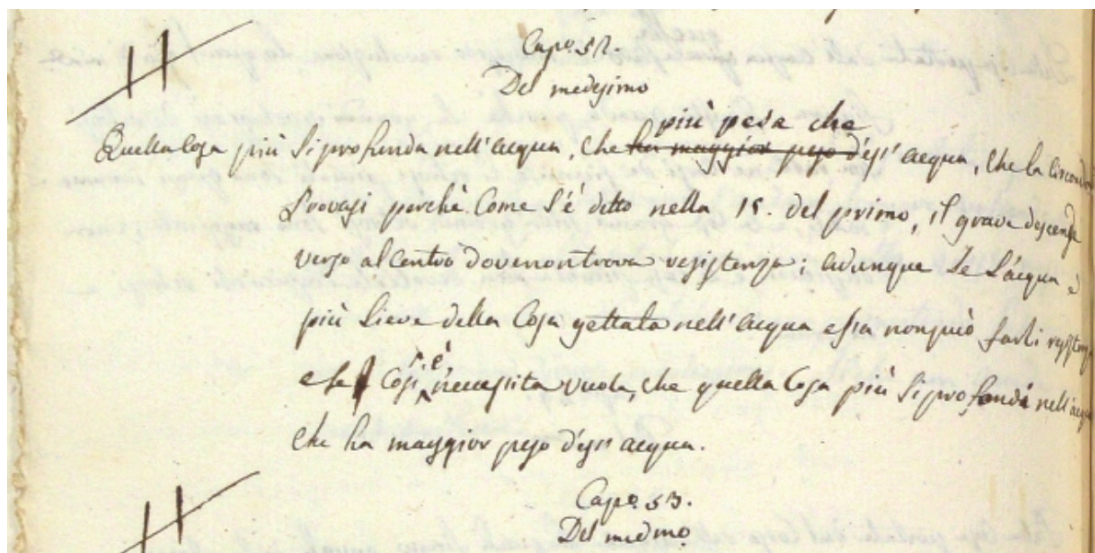 Capo. 52.
Del medesimo
più pesa che
Quella Cosa più si profonda nell'acqua, che ha maggior peso d'essa acqua, che la circonda
Provasi perchè Come s'è detto nella 15. del primo, il grave descende
verso al Centro dove non trova resistenza; adunque se l'acqua è
più lieve della Cosa gettata nell'acqua essa non può farli resistenza
e se Così è necessita vuole, che quella Cosa più si profonda nell'acqua
che ha maggior peso d'essa acqua.
Capo. 53.
Del medmo.